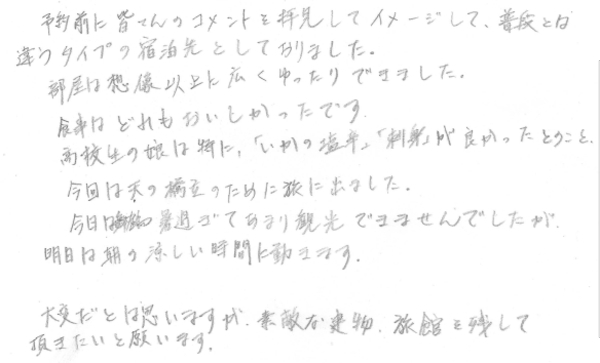 予約前に皆さんのコメントを拝見してイメージして、普段とは
違うタイプの宿泊先としておりました。
部屋は想像以上に広くゆったりできました。
食事はどれもおいしかったです。
高校生の娘は特に、「いかの塩辛」「刺身」が良かったとのこと。
今回は天の橋立のために旅に出ました。
今日は暑過ぎてあまり観光できませんでしたが、
明日は朝の涼しい時間に動きます。
大変だとは思いますが、素敵な建物、旅館を残して
頂きたいと願います。